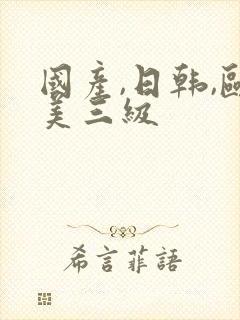 國產,日韩,歐
美三級
希言菲語